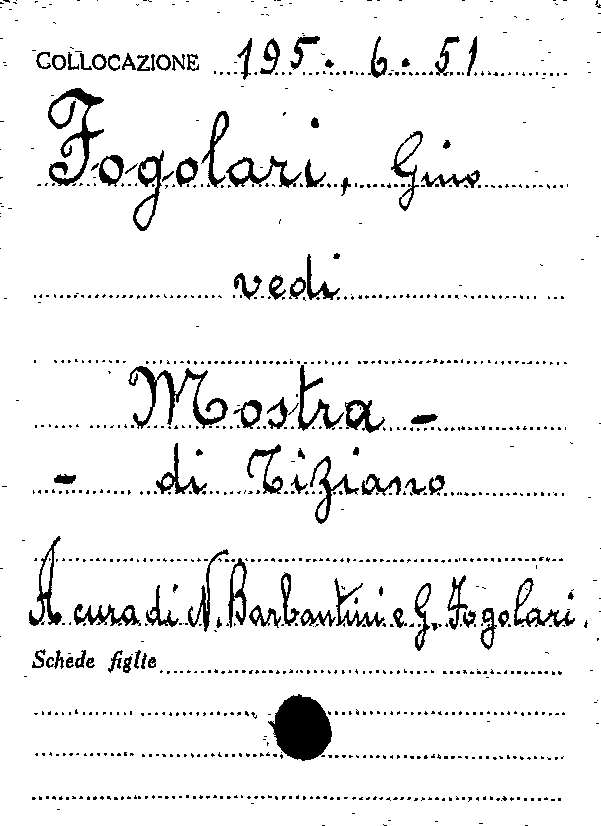 COLLOCAZIONE 195. 6. 51
Fogolari, Gino
vedi
Mostra -
- di Tiziano
A cura di N. Barbantini e G. Fogolari.
Schede figlie